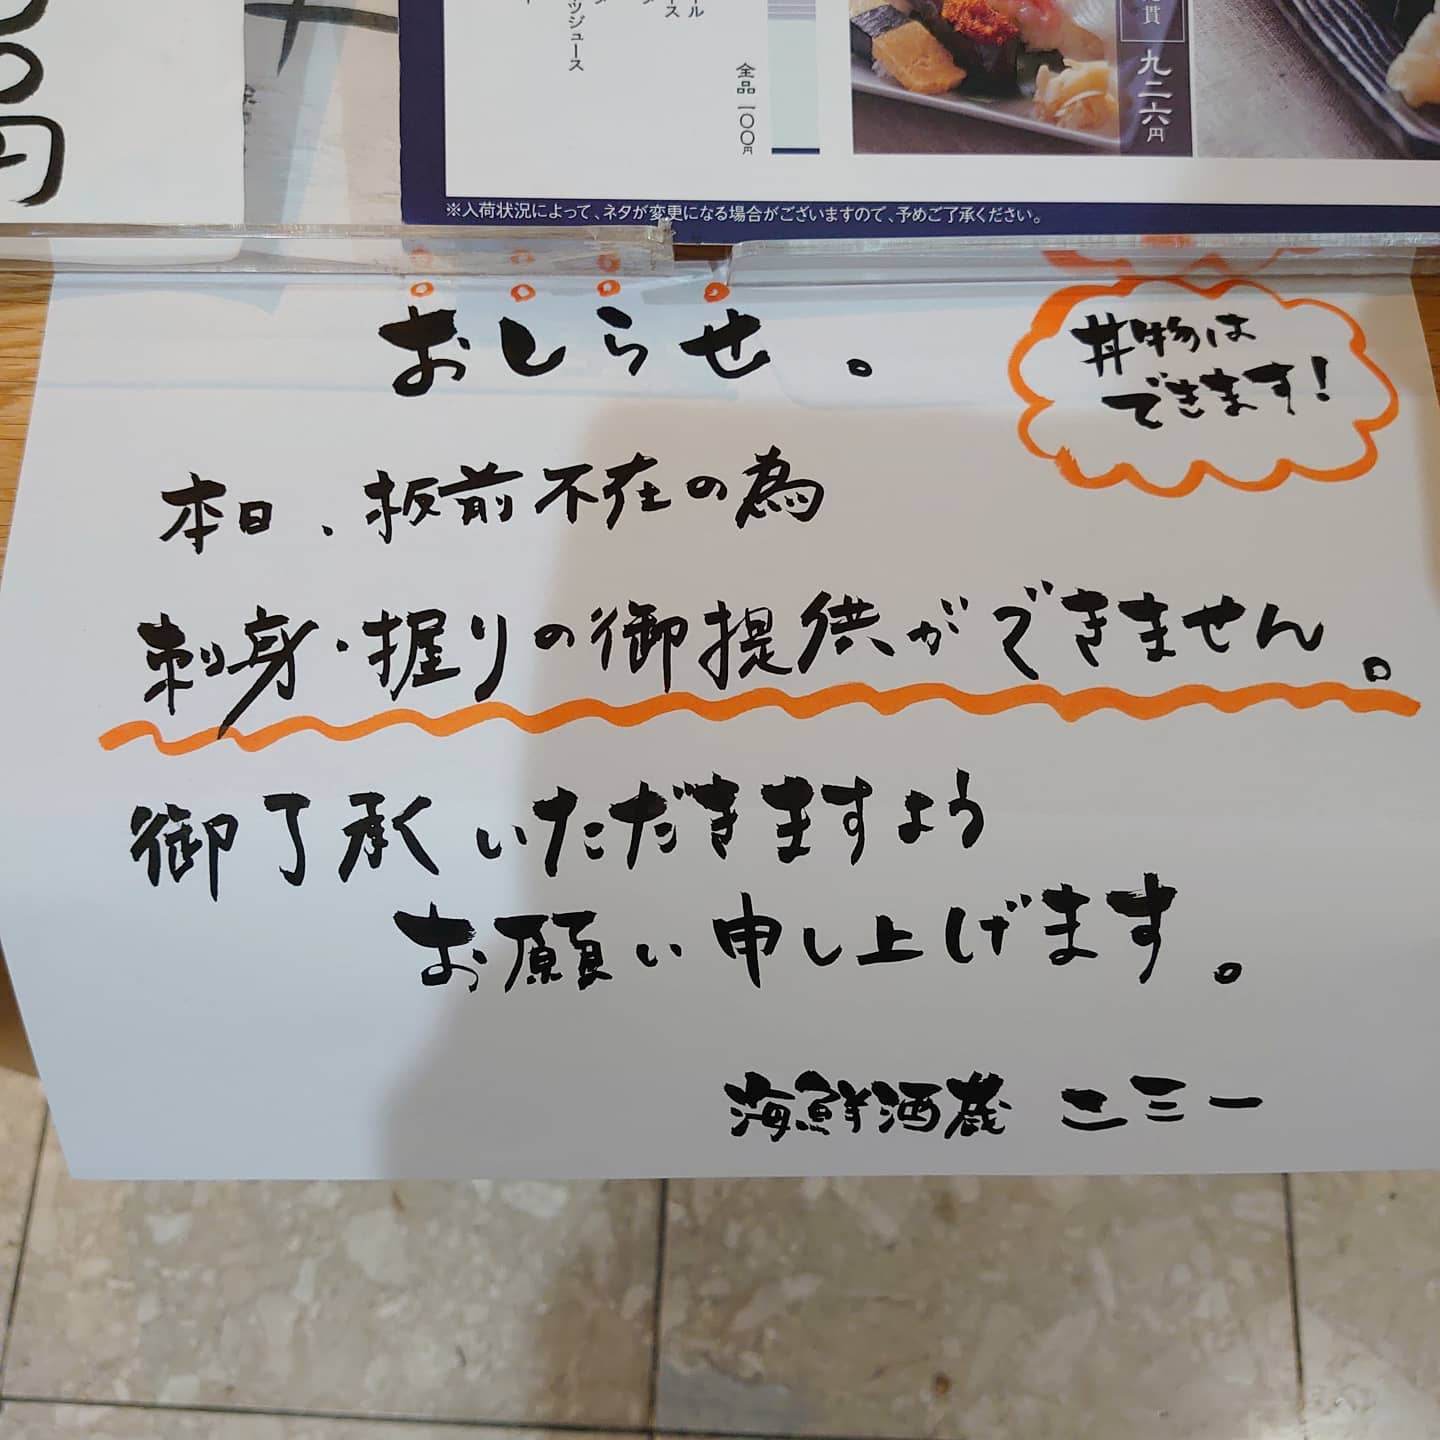 円
ール
ース
ッジュース
全品 一〇〇円
貫 九二六円
※入荷状況によって、ネタが変更になる場合がございますので、予めご了承ください。
おしらせ。
丼物は
できます!
本日、板前不在の為
刺身・握りの御提供ができません。
御了承いただきますよう
お願い申し上げます。
海鮮酒蔵 二三一